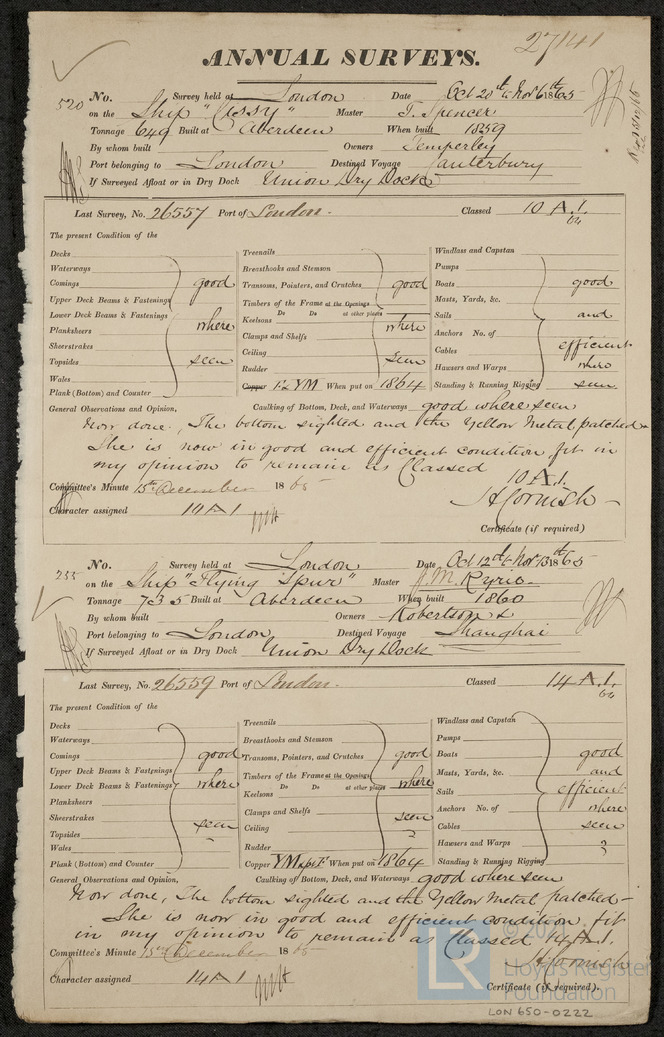 27141
ANNUAL SURVEYS.
520 No. Survey held at London Date Oct 20th to Nov 6th 1865
on the Ship "Jessy" Master T. Spencer
Tonnage 649 Built at Aberdeen When built 1859
By whom built Owners Temperley
Port belonging to London Destined Voyage Canterbury
If Surveyed Afloat or in Dry Dock Union Dry Dock
Last Survey, No. 26557 Port of London. Classed 10 A.1.
64
The present Condition of the
Decks
Waterways
Comings good
Upper Deck Beams & Fastenings
Lower Deck Beams & Fastenings
Planksheers where
Sheerstrakes
Topsides seen
Wales
Plank (Bottom) and Counter
Treenails
Breasthooks and Stemson
Transoms, Pointers, and Crutches good
Timbers of the Frame at the Openings
Do Do at other places
Keelsons where
Clamps and Shelfs
Ceiling seen
Rudder
Copper F&YM When put on 1864
Windlass and Capstan
Pumps
Boats good
Masts, Yards, &c.
Sails and
Anchors No. of
Cables efficient
Hawsers and Warps where
Standing & Running Rigging seen
General Observations and Opinion, Caulking of Bottom, Deck, and Waterways good where seen
Now done, The bottom sighted and the Yellow Metal patched
She is now in good and efficient condition fit in
my opinion to remain as Classed
10 A.1.
Committee's Minute 15th December 1865 H Cornish
Character assigned 10 A 1
Certificate (if required)
255 No. Survey held at London Date Oct 12th to Nov 13th 1865
on the Ship "Flying Spur" Master J. M. Ryrie
Tonnage 735 Built at Aberdeen When built 1860
By whom built Owners Robertson &
Port belonging to London Destined Voyage Shanghai
If Surveyed Afloat or in Dry Dock Union Dry Dock
Last Survey, No. 26559 Port of London. Classed 14 A.1.
64
The present Condition of the
Decks
Waterways
Comings good
Upper Deck Beams & Fastenings
Lower Deck Beams & Fastenings where
Planksheers
Sheerstrakes seen
Topsides
Wales
Plank (Bottom) and Counter
Treenails
Breasthooks and Stemson
Transoms, Pointers, and Crutches good
Timbers of the Frame at the Openings where
Do Do at other places
Keelsons
Clamps and Shelfs seen
Ceiling
Rudder
Copper YM &F When put on 1864
Windlass and Capstan
Pumps
Boats good
Masts, Yards, &c. and
Sails efficient
Anchors No. of where
Cables seen
Hawsers and Warps
Standing & Running Rigging
General Observations and Opinion, Caulking of Bottom, Deck, and Waterways good where seen
Now done, The bottom sighted and the Yellow Metal patched-
She is now in good and efficient condition, fit
in my opinion to remain as Classed 14 A.1.
Committee's Minute 15th December 1865 H Cornish
Character assigned 14 A 1
Certificate (if required).
LR
Lloyd's Register
Foundation
LON 650-0222